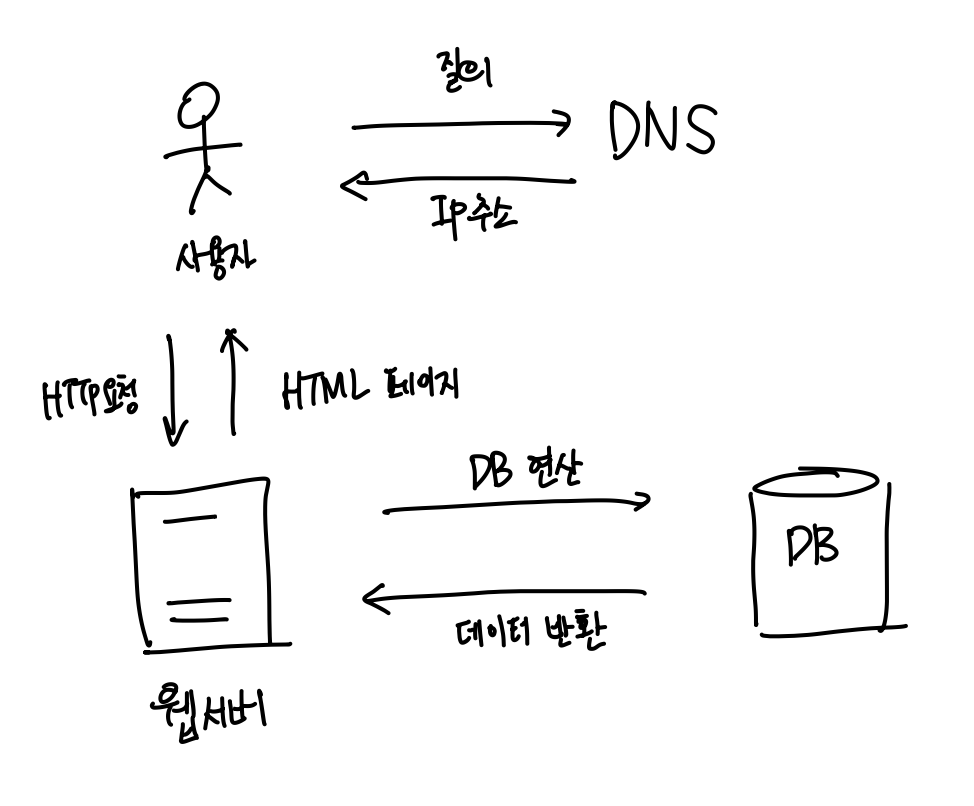 질의
DNS
IP주소
사용자
HTTP요청
HTML 페이지
DB 연산
DB
데이터 반환
웹서버